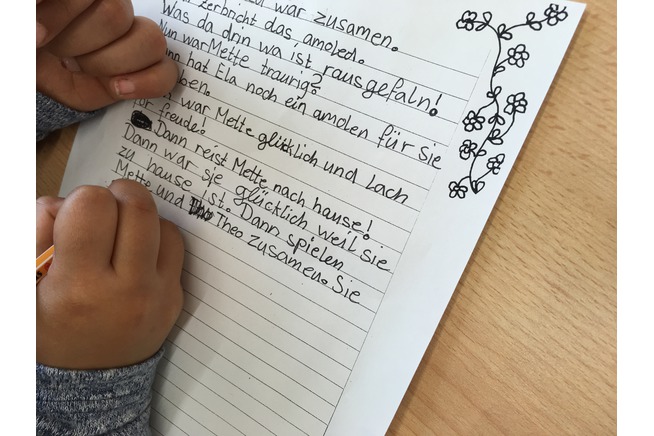 war zusamen.
zerbricht das amoled.
Was da drin wa ist rausgefaln!
Nun war Mette traurig?
hat Ela noch ein amolen für sie
war Mette glücklich und Lach
für freude!
Dann reist Mette nach hause!
Dann war sie glücklich weil sie
zu hause ist. Dann spielen
Mette und Theo zusamen. Sie